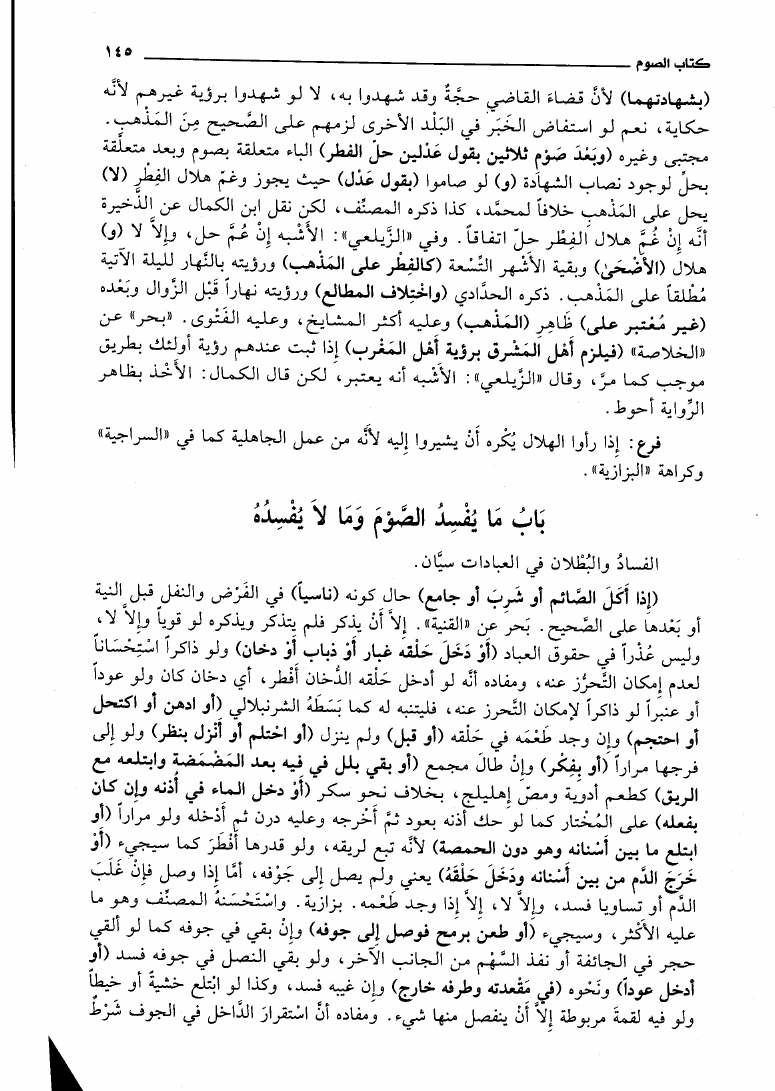 كتاب الصوم ١٤٥
(بشهادتهما) لأنَّ قضاءَ القاضي حجَّةٌ وقد شهدوا به، لا لو شهدوا برؤية غيرهم لأنَّه
حكاية، نعم لو استفاض الخَبَر في البَلَد الأخرى لزمهم على الصَّحيح مِنَ المَذْهب.
مجتبى وغيره (وبَعْدَ صَوْم ثلاثين بقول عَدْلين حلّ الفطر) الباء متعلقة بصوم وبعد متعلَّقة
بحلَّ لوجود نصاب الشهادة (و) لو صاموا (بقول عَدْل) حيث يجوز وغمّ هلال الفِطْر (لا)
يحل على المَذْهب خلافاً لمحمَّد، كذا ذكره المصنِّف، لكن نقل ابن الكمال عن الذَّخيرة
أنَّه إِنْ غُمَّ هلال الفِطْر حلّ اتفاقاً. وفي «الزَّيلعي»: الأشْبه إِنْ غُمَّ حل، وإلاَّ لا (و)
هلال (الأضْحَىٰ) وبقية الأشْهر التِّسْعة (كالفِطْر على المَذْهب) ورؤيته بالنَّهار لليلة الآتية
مُطْلقاً على المَذْهب. ذكره الحدَّادي (واخْتِلاف المطالع) ورؤيته نهاراً قَبْل الزَّوال وبَعْده
(غير مُعْتبر على) ظَاهِرِ (المَذْهب) وعليه أكثر المشايخ، وعليه الفَتْوى. «بحر» عن
«الخلاصة» (فيلزم أَهْل المَشْرق برؤية أَهْل المَغْرب) إذا ثبت عندهم رؤية أولئك بطريق
موجب كما مرَّ، وقال «الزَّيلعي»: الأشْبه أنه يعتبر، لكن قال الكمال: الأخْذ بظاهر
الرِّواية أحوط.
فرع: إذا رأوا الهلال يُكْره أَنْ يشيروا إليه لأنَّه من عمل الجاهلية كما في «السراجية»
وكراهة «البزازية».
بَابُ مَا يُفْسِدُ الصَّوْمَ وَمَا لاَ يُفْسِدُهُ
الفسادُ والبُطْلان في العبادات سيَّان.
(إذا أَكَلَ الصَّائم أو شَرِبَ أو جامع) حال كونه (ناسياً) في الفَرْض والنفل قبل النية
أو بَعْدها على الصَّحيح. بَحر عن «القنية». إلاَّ أَنْ يذكر فلم يتذكر ويذكره لو قوياً وإلاَّ لا،
وليس عُذْراً في حقوق العباد (أَوْ دَخَلَ حَلْقه غبار أَوْ ذباب أَوْ دخان) ولو ذاكراً اسْتِحْسَاناً
لعدم إمكان التَّحرُّز عنه، ومفاده أنَّه لو أدخل حَلْقه الدُّخان أَفْطر، أي دخان كان ولو عوداً
أو عنبراً لو ذاكراً لإمكان التَّحرز عنه، فليتنبه له كما بَسَطَهُ الشرنبلالي (أو ادهن أو اكتحل
أو احتجم) وإن وجد طَعْمَه في حَلْقه (أو قبل) ولم ينزل (أو احتلم أو أَنْزل بنظر) ولو إلى
فرجها مراراً (أو بِفِكْر) وإنْ طالَ مجمع (أو بقي بلل في فيه بعد المَضْمَضة وابتلعه مع
الريق) كطعم أدوية ومصّ إهليلج، بخلاف نحو سكر (أَوْ دخل الماء في أُذنه وإن كان
بفعله) على المُخْتار كما لو حك أذنه بعود ثمَّ أَخْرجه وعليه درن ثم أَدْخله ولو مراراً (أو
ابتلع ما بين أَسْنانه وهو دون الحمصة) لأنَّه تبع لريقه، ولو قدرها أَفْطَرَ كما سيجيء (أَوْ
خَرَجَ الدَّم من بين أَسْنانه ودَخَلَ حَلْقَهُ) يعني ولم يصل إلى جَوْفه، أمَّا إذا وصل فإنْ غَلَبَ
الدَّم أو تساويا فسد، وإلاَّ لا، إلاَّ إذا وجد طَعْمه. بزازية. واسْتَحْسَنهُ المصنِّف وهو ما
عليه الأكْثر، وسيجيء (أو طعن برمح فوصل إلى جوفه) وإنْ بقي في جوفه كما لو ألقي
حجر في الجائفة أو نفذ السَّهْم من الجانب الآخر، ولو بقي النصل في جوفه فسد (أو
أدخل عوداً) ونَحْوه (في مَقْعدته وطرفه خارج) وإن غيبه فسد، وكذا لو ابْتلع خشبةً أو خيطاً
ولو فيه لقمة مربوطة إلاَّ أَنْ ينفصل منها شيء. ومفاده أنَّ اسْتقرارَ الدَّاخل في الجوف شَرْطٌ